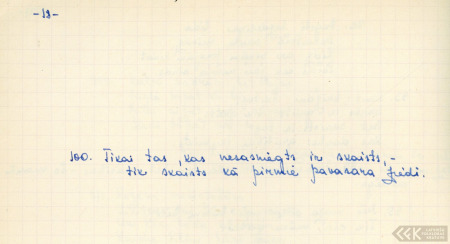 -12-
100. Tikai tas, kas nesasniegts ir skaists, -
tik skaists kā pirmie pavasara ziedi.